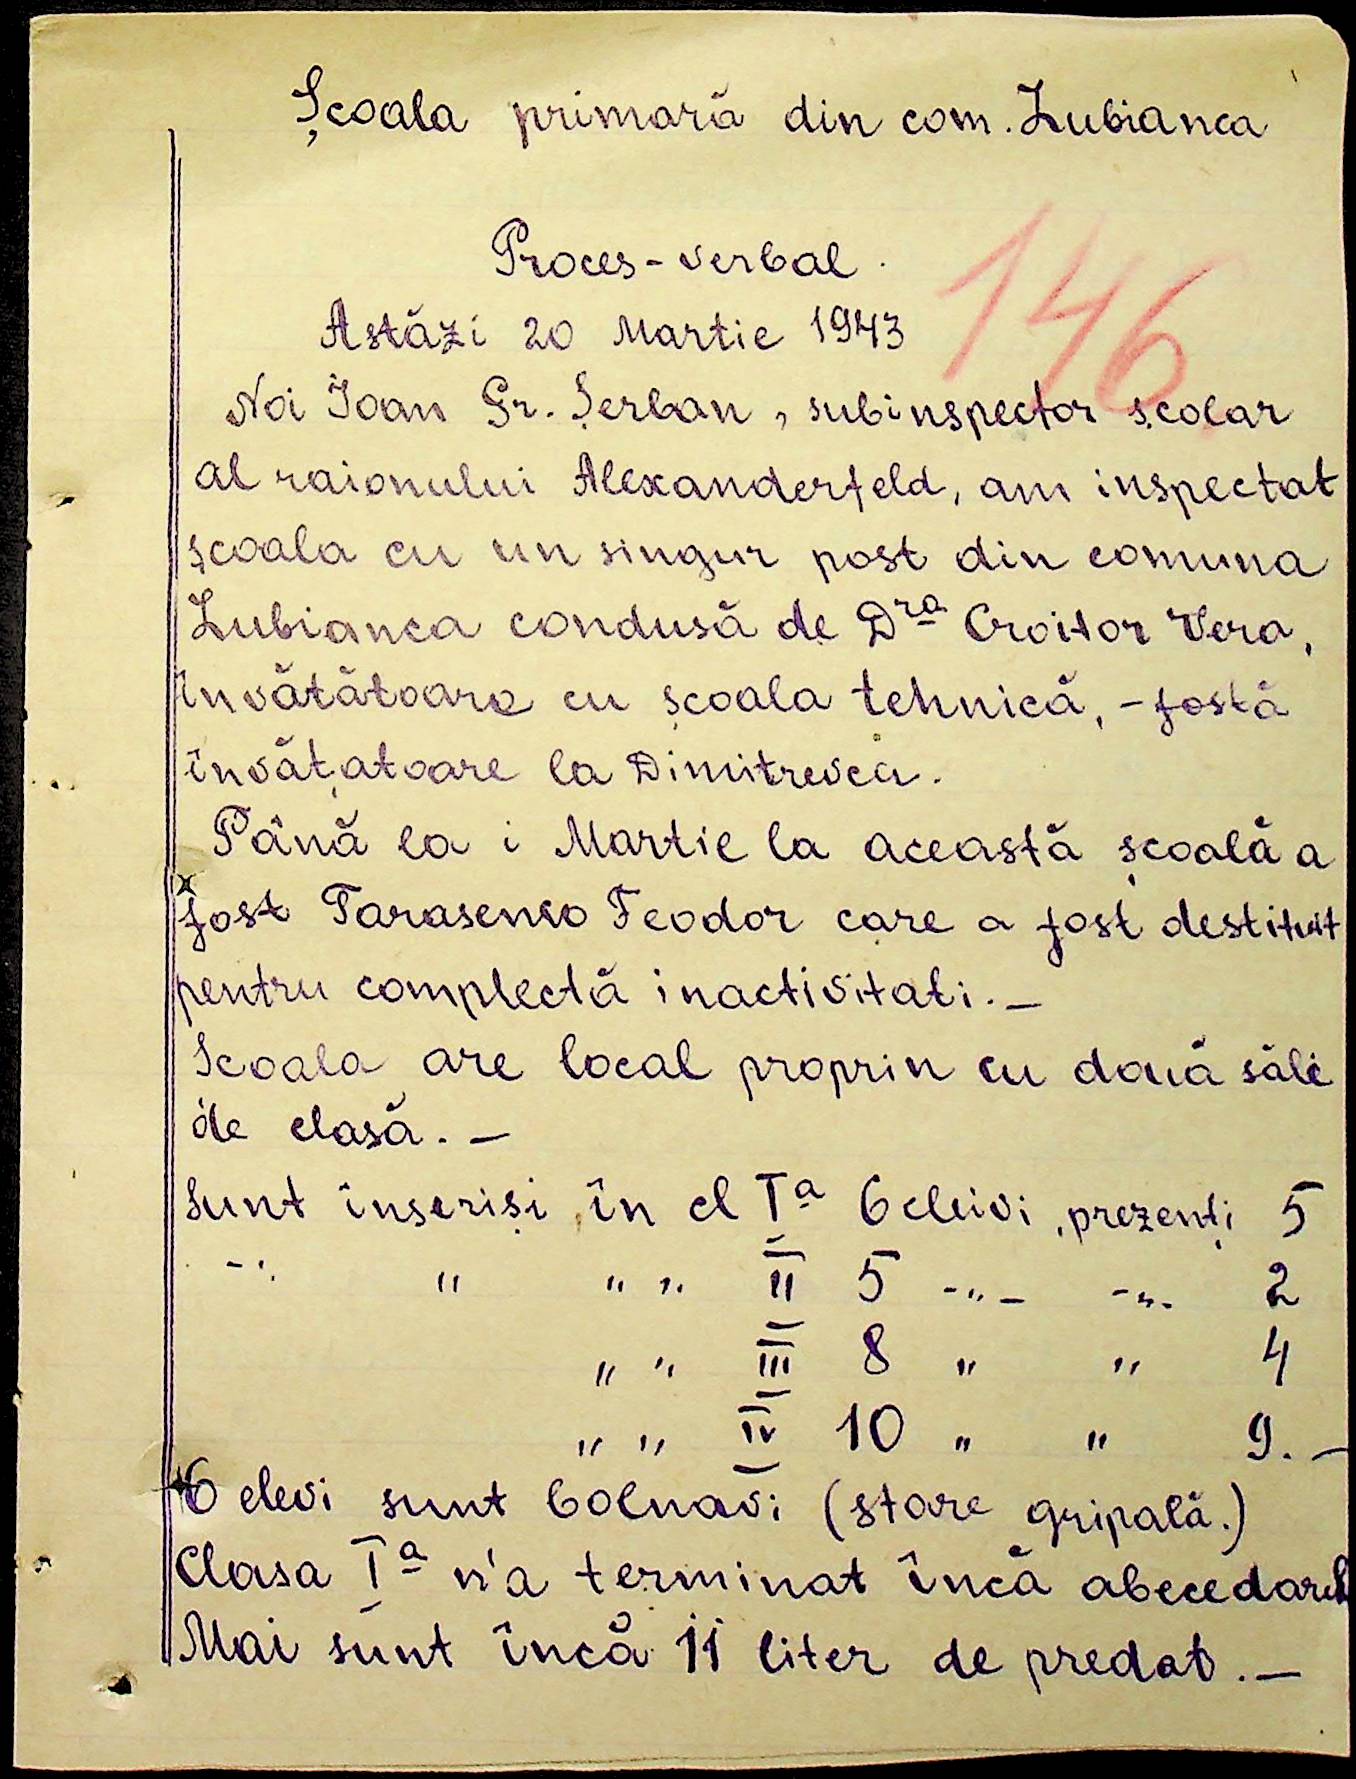 Școala primară din com. Lubianca
146
Proces-verbal.
Astăzi 20 Martie 1943
Noi Ioan Gr. Șerban, subinspector școlar
al raionului Alexanderfeld, am inspectat
școala cu un singur post din comuna
Lubianca condusă de Dra Croitor Vera,
învătătoare cu școala tehnică, - fostă
învățatoare la Dimitrevca.
Până la i Martie la această școală a
fost Tarasenco Feodor care a fost destituit
pentru complectă inactivitati. —
Scoala are local propriu cu două săli
de clasă. —
Sunt înscriși în cl Ia 6 eleivi, prezenți 5
-". " " " II 5 -"- -"- 2
" " III 8 " " 4
" " IV 10 " " 9. —
6 elevi sunt bolnavi (stare gripală.)
Clasa Ia n'a terminat încă abecedarul
Mai sunt încă 11 liter de predat. —